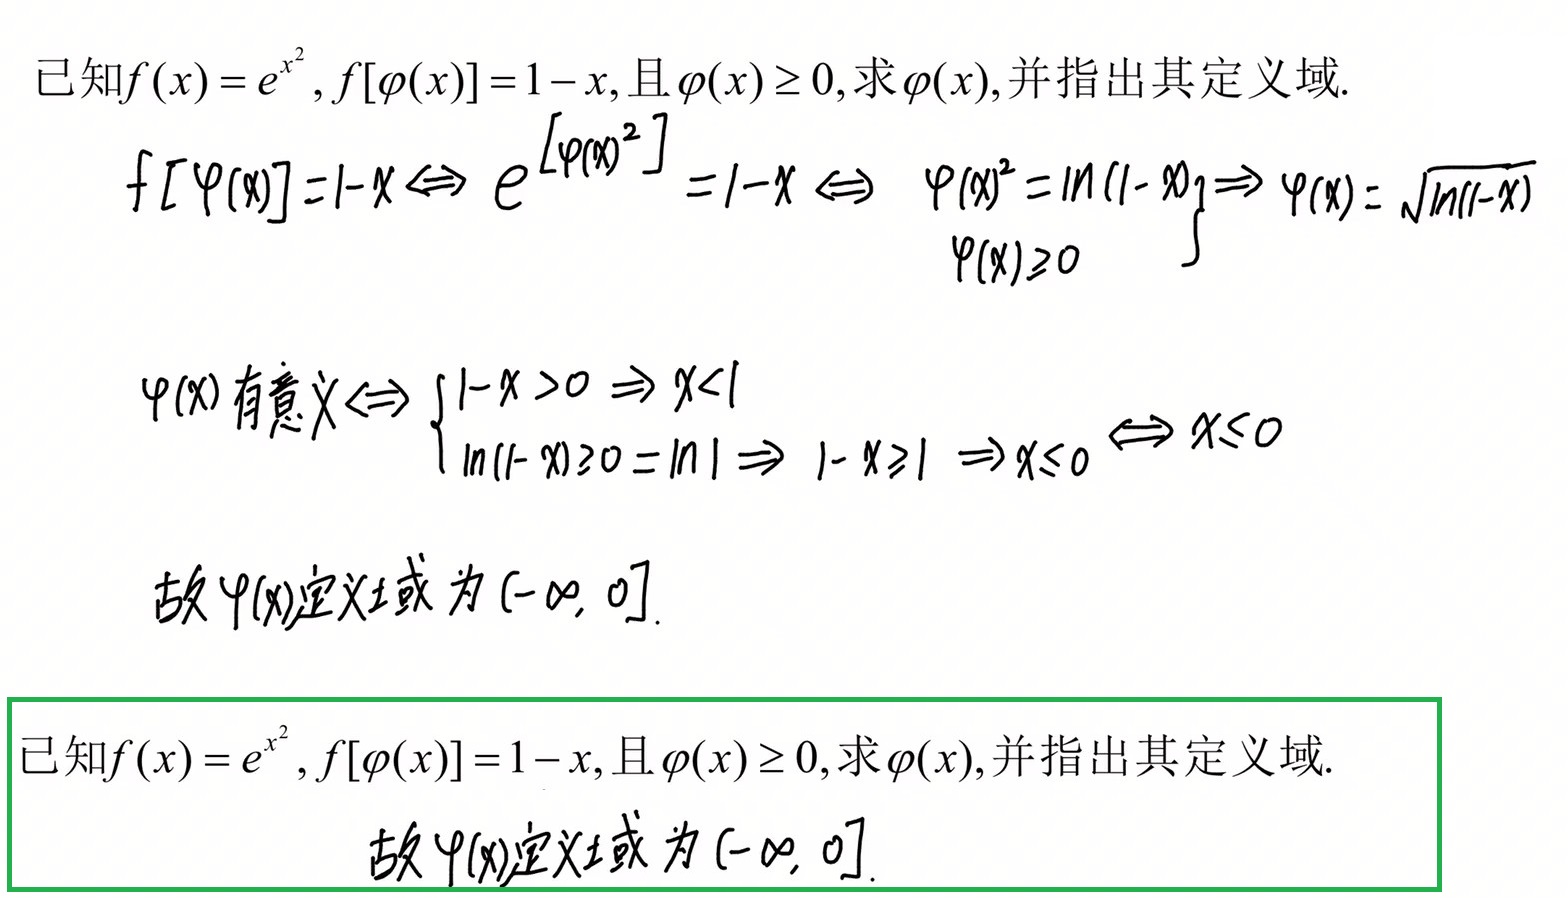 已知f(x)=e^{x^2},f[φ(x)]=1−x,且φ(x)≥0,求φ(x),并指出其定义域.
f[φ(x)]=1-x⇔e^{[φ(x)^2]}=1-x⇔φ(x)^2=ln(1-x)}⇒φ(x)=√ln(1-x)
φ(x)≥0
φ(x)有意义⇔{1-x>0⇒x<1
ln(1-x)≥0=ln1⇒1-x≥1⇒x≤0⇔x≤0
故φ(x)定义域为(-∞,0].
已知f(x)=e^{x^2},f[φ(x)]=1−x,且φ(x)≥0,求φ(x),并指出其定义域.
故φ(x)定义域为(-∞,0].